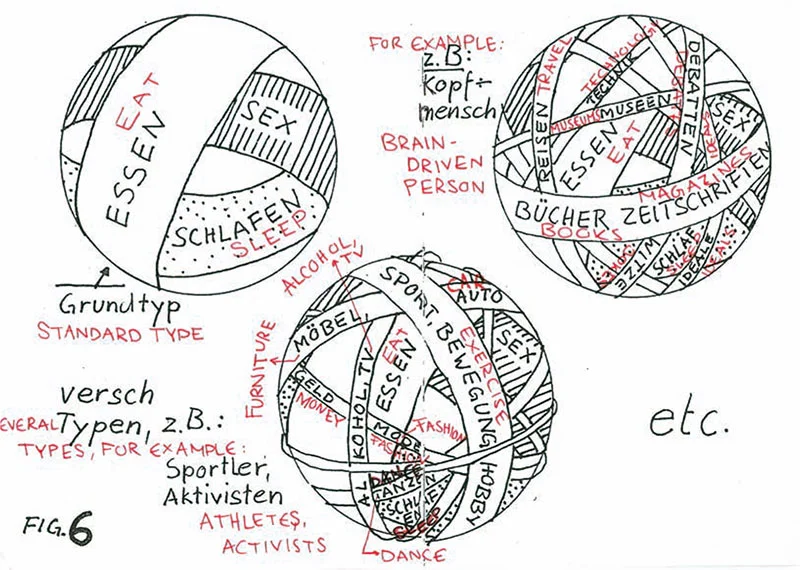 EAT
ESSEN
SEX
SCHLAFEN
SLEEP
Grundtyp
STANDARD TYPE
FOR EXAMPLE:
z.B:
Kopf÷
mensch
BRAIN-
DRIVEN
PERSON
REISEN TRAVEL
TECHNOLOGY
TECHNIK
DEBATTEN
DEBATES
MUSEUMS MUSEEN
ESSEN
EAT
SEX
MAGAZINES
BÜCHER ZEITSCHRIFTEN
BOOKS
WITZE
SCHLAF
SLEEP
IDEALE
IDEALS
versch
Typen, z.B.:
EVERAL
TYPES, FOR EXAMPLE:
Sportler,
Aktivisten
ATHLETES,
ACTIVISTS
ALCOHOL,
TV
FURNITURE
MÖBEL,
SPORT, BEWEGUNG HOBBY
EXERCISE
CAR
AUTO
SEX
EAT
ESSEN
ALKOHOL, TV
GELD
MONEY
MODE,
FASHION
FASHION
DANCE
TANZEN
SCHLAFEN
SLEEP
DANCE
etc.
FIG.6